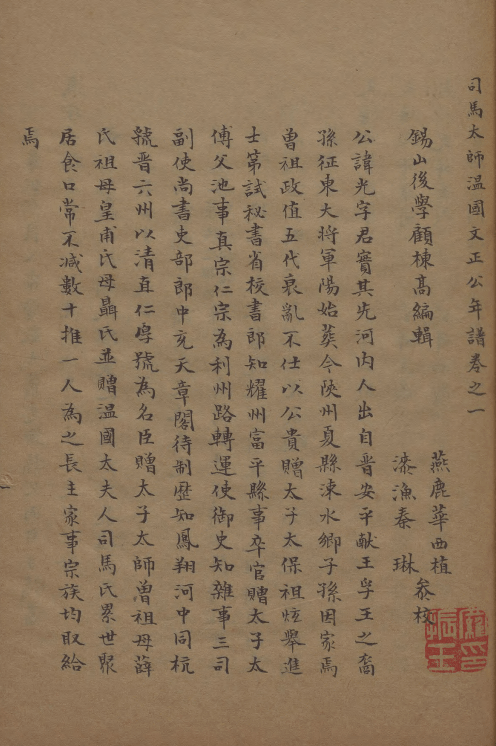 司馬太師溫國文正公年譜卷之一
燕鹿華西植
漆漁秦琳 叅校
錫山後學顧棟髙編輯
公諱光字君實其先河内人出自晋安平献王孚王之裔
孫征東大將軍陽始葬今陝州夏縣涑水鄉子孫因家焉
曽祖政值五代衰亂不仕以公貴贈太子太保祖炫舉進
士第試秘書省校書郎知耀州富平縣事卒官贈太子太
傅父池事真宗仁宗為利州路轉運使御史知雜事三司
副使尚書吏部郎中充天章閣待制歷知鳳翔河中同杭
虢晋六州以清直仁厚號為名臣贈太子太師曽祖母薛
氏祖母皇甫氏母聶氏並贈温國太夫人司馬氏累世聚
居食口常不減數十推一人為之長主家事宗族均取給
焉